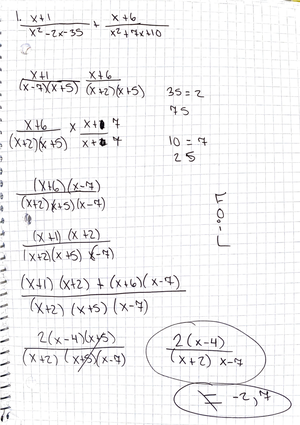 1. x+1 / x²-2x-35 + x+6 / x²+7x+10
x+1 / (x-7)(x+5) x+6 / (x+2)(x+5)
35 = 2
7 5
x+6 / (x+2)(x+5) x x+ 7 / x+ 7
10 = 7
2 5
(x+6)(x-7) / (x+2)(x+5)(x-7)
F
O
I
L
(x+1)(x+2) / (x+2)(x+5)(x-7)
(x+1)(x+2) + (x+6)(x-7) / (x+2)(x+5)(x-7)
2(x-4)(x+5) / (x+2)(x+5)(x-7)
2(x-4) / (x+2) x-7
≠ -2, 7